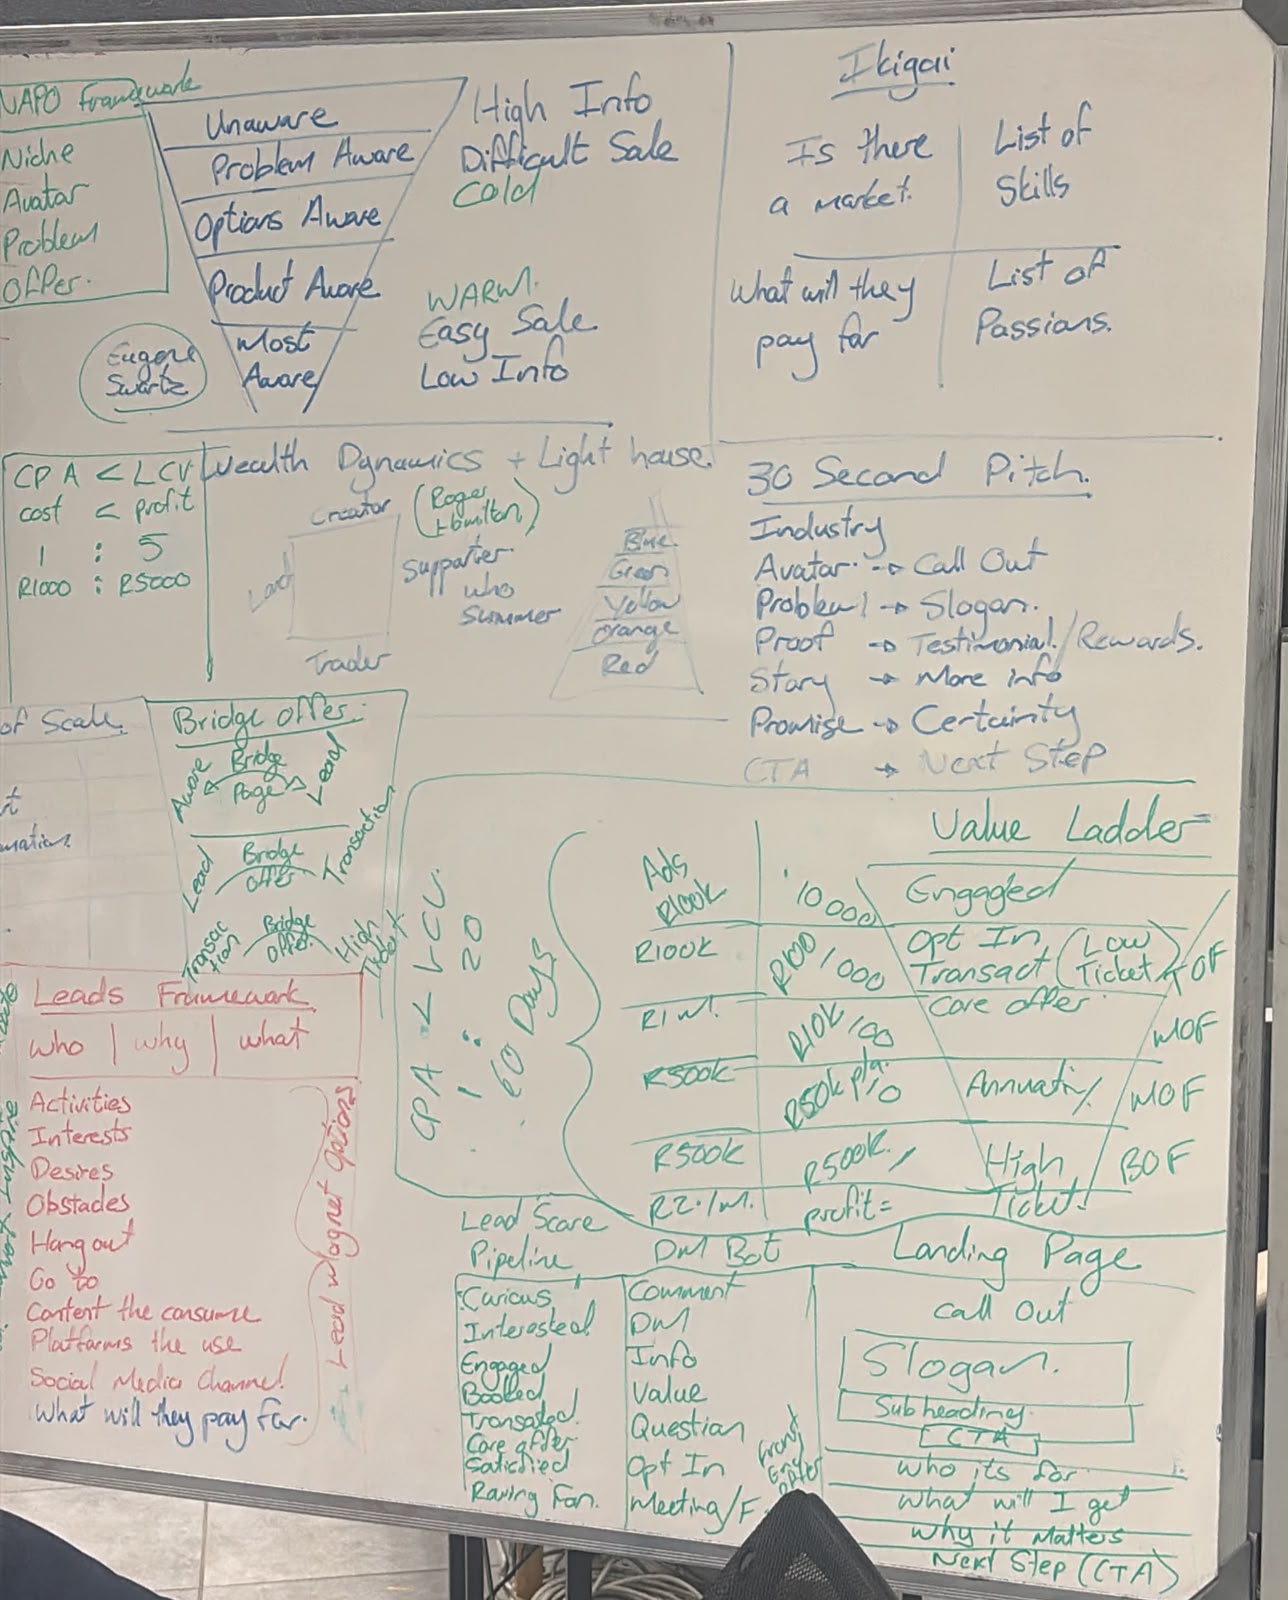 NAPO Framework
Niche
Avatar
Problem
Offer.
Unaware
Problem Aware
Options Aware
Product Aware
Most
Aware
Eugene
Swartz
High Info
Difficult Sale
Cold
WARM.
Easy Sale
Low Info
Ikigai
Is there
a market.
List of
Skills
What will they
pay for
List of
Passions.
CPA < LCV
cost < profit
1 : 5
R1000 : R5000
Wealth Dynamics + Light house.
Creator
(Roger
Hamilton)
Supporter
who
Summer
Lord
Trader
Blue
Green
Yellow
Orange
Red
30 Second Pitch.
Industry
Avatar → Call Out
Problem → Slogan.
Proof → Testimonial/Rewards.
Story → More info
Promise → Certainty
CTA → Next Step
of Scale.
Bridge offer.
Aware Bridge Page Lead
Lead Bridge offer Transaction
Transaction Bridge offer High Ticket
Leads Framework
who | why | what
Activities
Interests
Desires
Obstacles
Hang out
Go to
Content the consume
Platforms the use
Social Media Channel
What will they pay for.
Lead Magnet Options
CPA < LCV
1 : 20
60 Days
Value Ladder
Ads
R100k 10000 Engaged
R100k R100 1000 Opt In
Transact (Low Ticket) TOF
R1M. R10K 100 Core offer MOF
R500k R50k pa. 10 MOF
R500k R500k 1 High Ticket BOF
R2.1M. profit =
Lead Score
Pipeline
Curious
Interested
Engaged
Booked
Transated
Core offer
Satisfied
Raving Fan.
DM Bot
Comment
DM
Info
Value
Question
Opt In
Meeting/F
Landing Page
Call Out
Slogan.
Subheading
CTA
Who its for
What will I get
Why it Matters
Next Step (CTA)